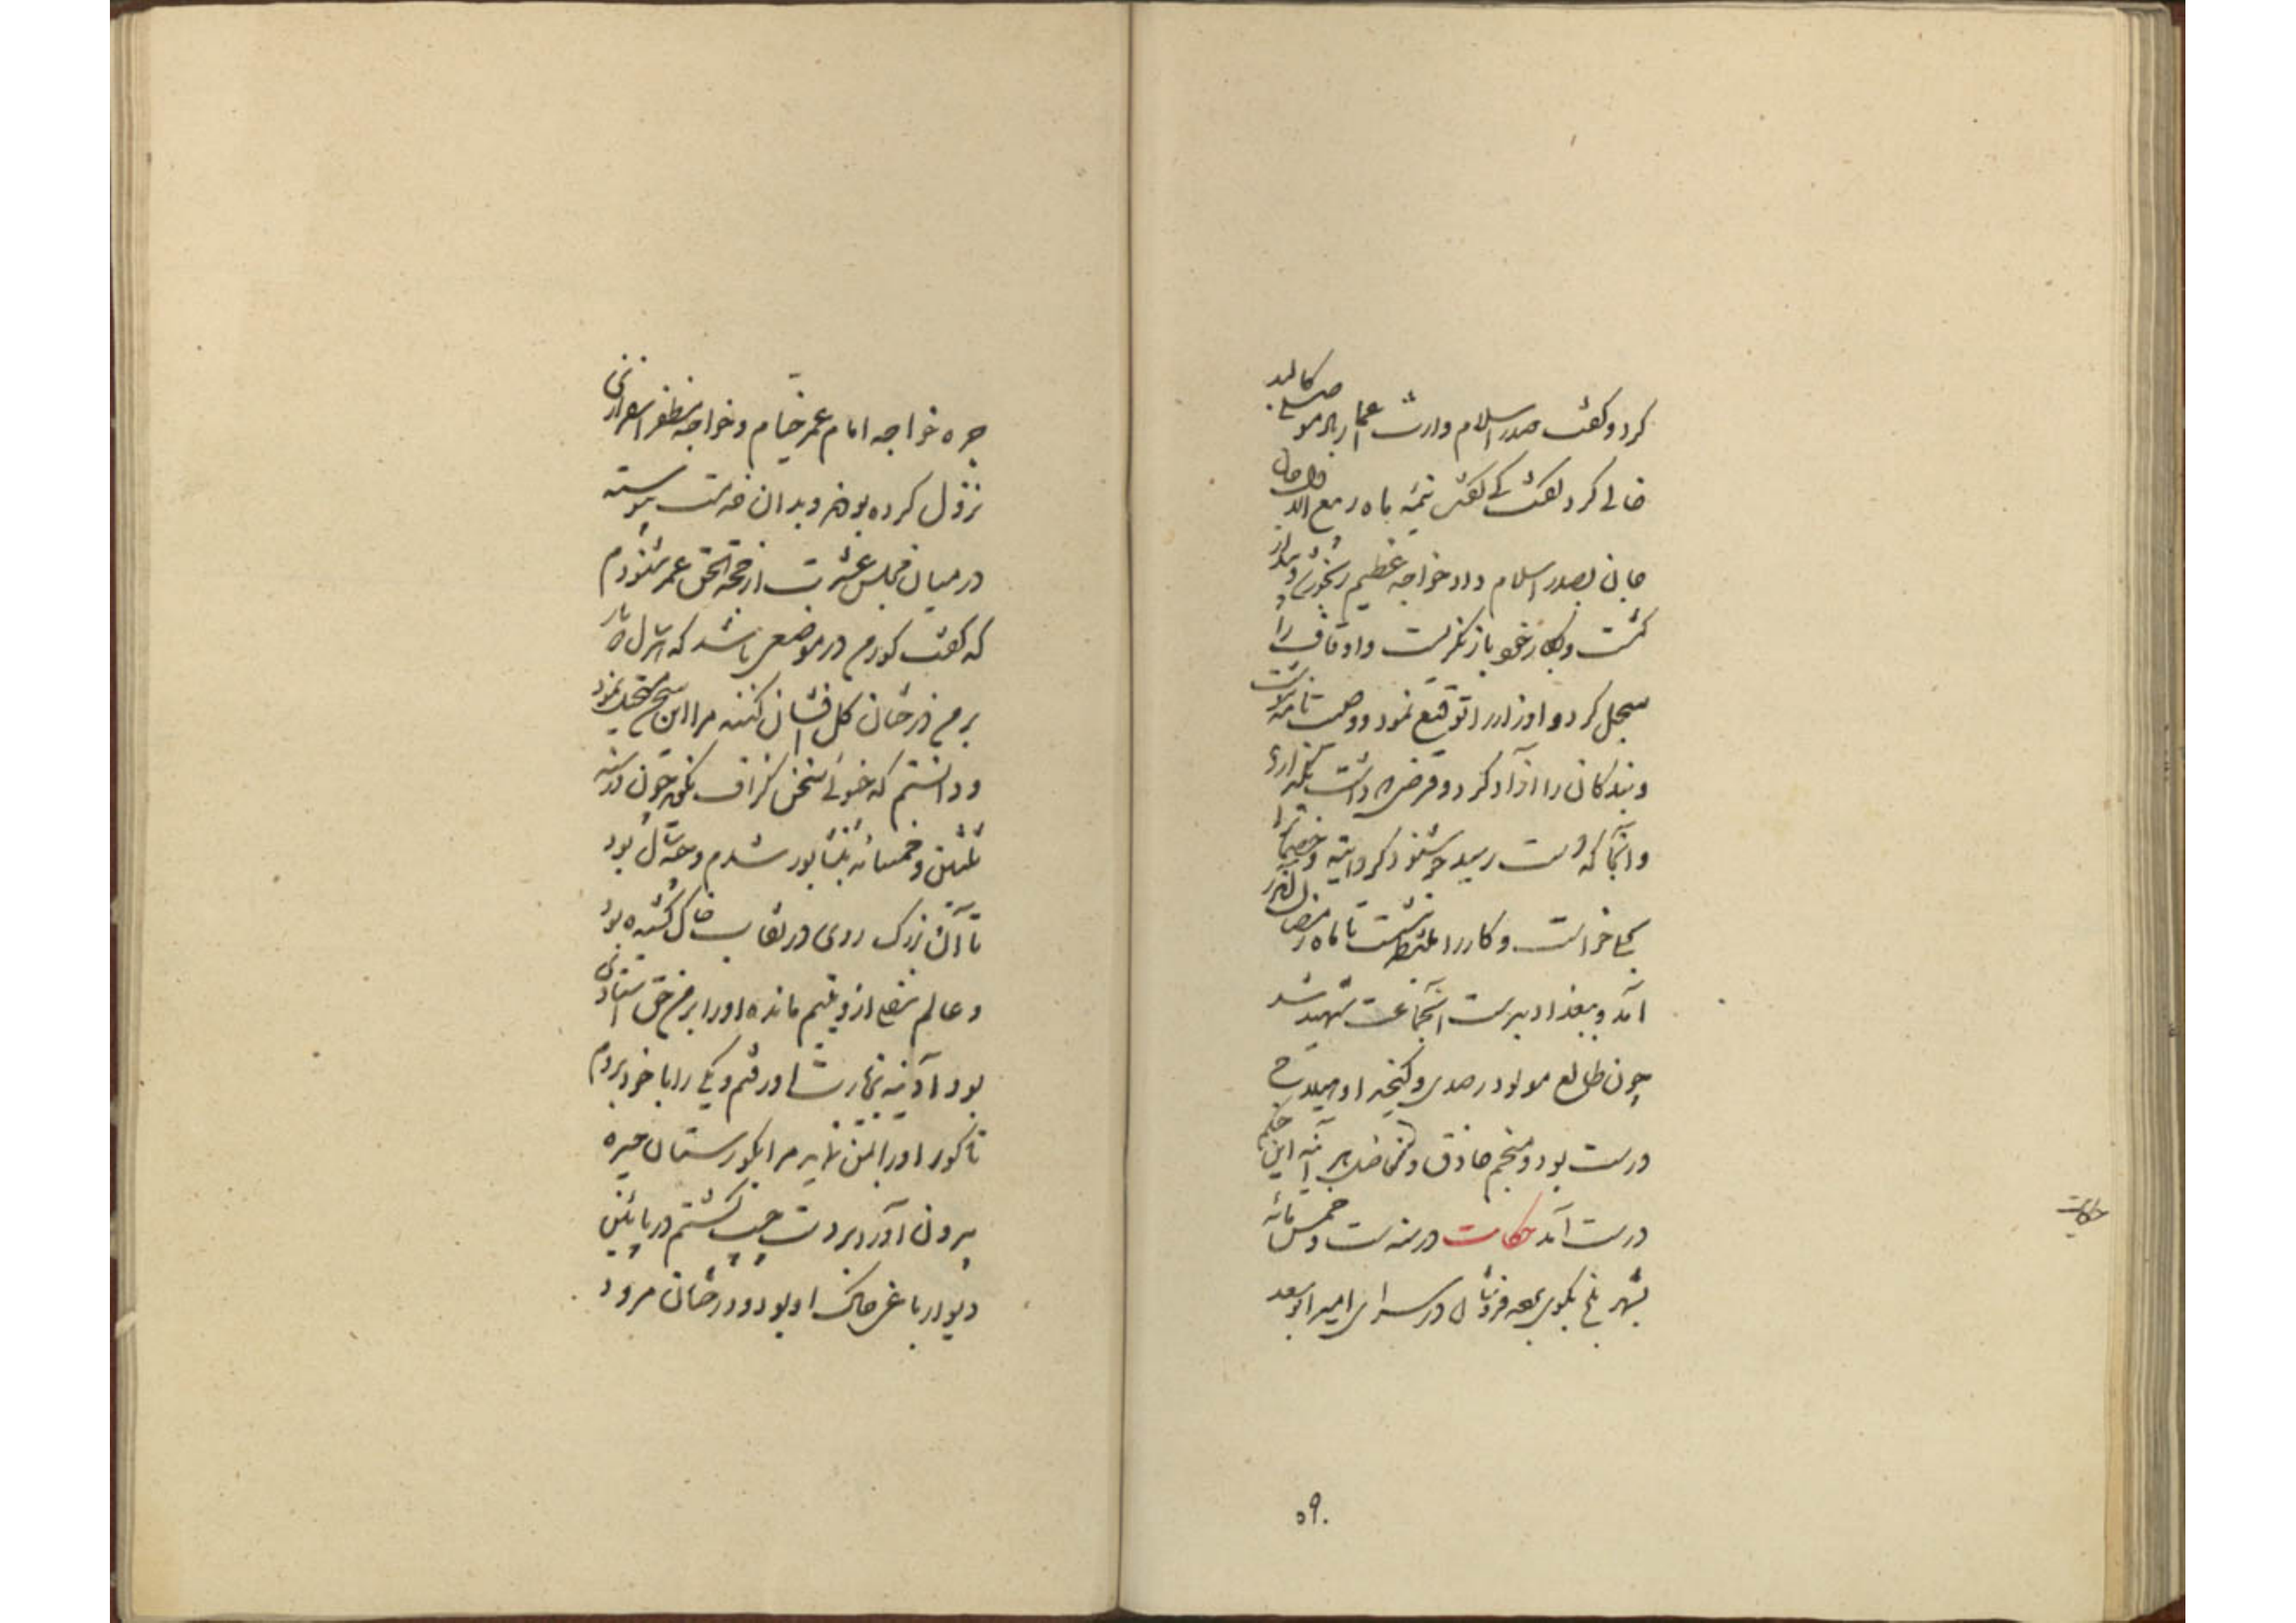 کرد و گفت صدر اسلام وارث عمار الموصلی کالبد
خالی کرد گفت کی گفت نیمه ماه ربیع الاول حال
جانی بصدر اسلام داد خواجه عظیم رنجور دل شد از
گشت و بکار خود باز نگریست و اوقاف را
سجل کرد و اوزار را توقیع نمود و وصیت نامه
و بندگان را آزاد کرد و قرضی که داشت بگذارد
و آنجا که دست رسید خوشنود گردانید و خصمان را
بحلی خواست و کار را منتظر بنشست تا ماه رمضان اندر
آمد و ببغداد بر دست آنجماعت شهید شد
چون طالع مولود رصدی و کدخدا و هیلاج
درست بود و منجم حاذق و فاضل هر آینه این حکم
درست آید حکایت در سنه ست و خمس مائه
بشهر بلخ بکوی برده فروشان در سرای امیر ابو سعد
حکایت
۵۹
جره خواجه امام عمر خیام و خواجه مظفر اسفزاری
نزول کرده بودند و بدان خدمت پیوسته
در میان مجلس عشرت از حجة الحق عمر شنودم
که گفت گور من در موضعی باشد که هر سال
بر من درختان گل افشان کنند مرا این سخن مستحیل نمود
و دانستم که چنوئی سخن گزاف نگوید چون در سنه
ثلثین و خمسمائه بنشابور شدم و چند سال بود
تا آن بزرگ روی در نقاب خاک کشیده بود
و عالم سفلی از و یتیم مانده و او را بر من حق استادی
بود آدینه بزیارت او رفتم و یکی را با خود بردم
تا گور او را بمن نماید مرا بگورستان حیره
بیرون آورد بر دست چپ گشتم در پائین
دیوار باغی خاک او بود و درختان مرود